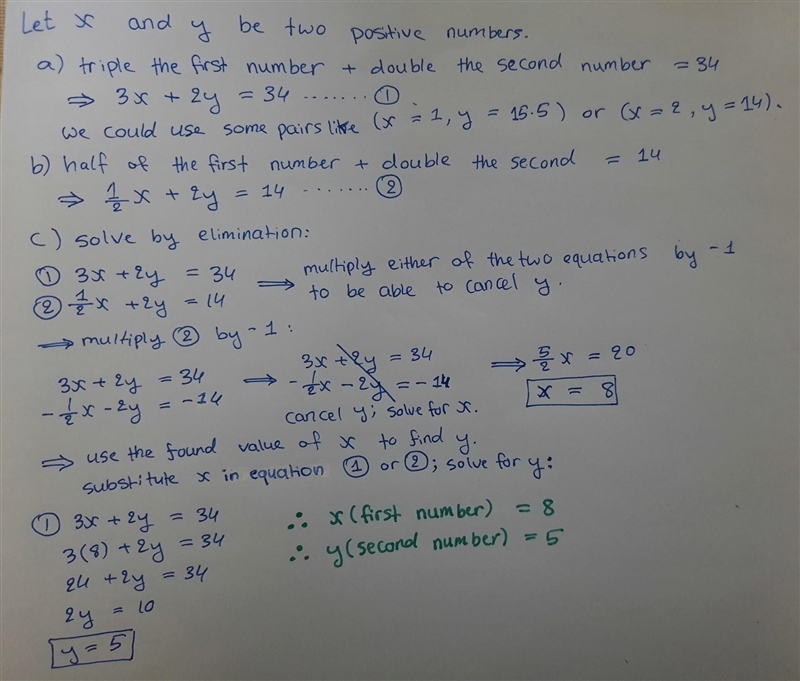 Let x and y be two positive numbers.
a) triple the first number + double the second number = 34
⇒ 3x + 2y = 34 ....... ①
we could use some pairs like (x = 1, y = 15.5) or (x = 2, y = 14).
b) half of the first number + double the second = 14
⇒ 1/2 x + 2y = 14 ....... ②
c) solve by elimination:
① 3x + 2y = 34 ⇒ multiply either of the two equations by -1
② 1/2 x + 2y = 14 to be able to cancel y.
⇒ multiply ② by -1 :
3x + 2y = 34 ⇒ 3x + 2y = 34 ⇒ 5/2 x = 20
- 1/2 x - 2y = -14 - 1/2 x - 2y = -14 x = 8
cancel y; solve for x.
⇒ use the found value of x to find y.
substitute x in equation ① or ②; solve for y:
① 3x + 2y = 34 ∴ x (first number) = 8
3(8) + 2y = 34 ∴ y (second number) = 5
24 + 2y = 34
2y = 10
y = 5